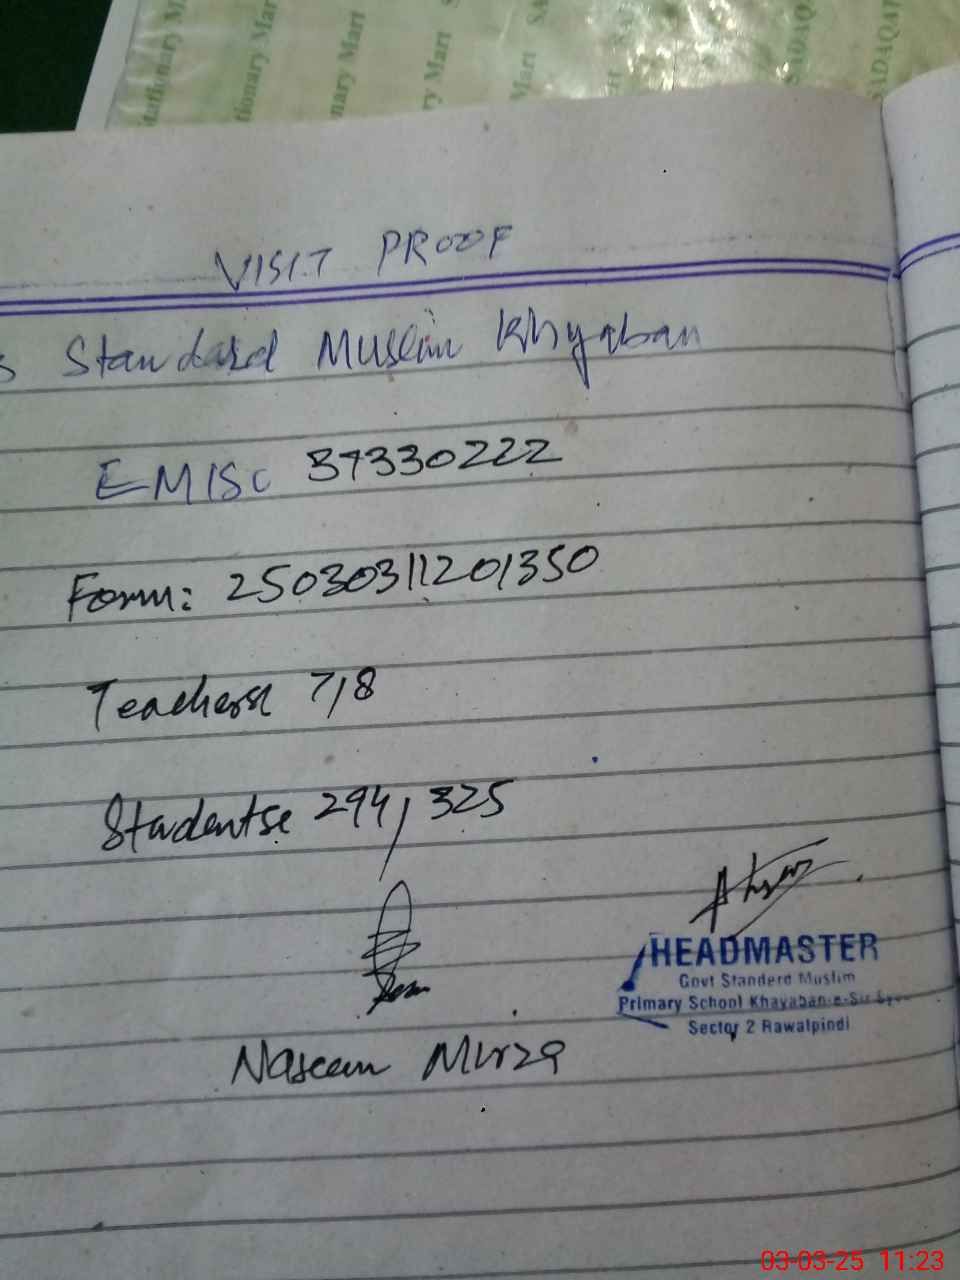 Stationary Mart
VISIT PROOF
s Standard Muslim Khyaban
EMISc 37330222
Form: 25030311201350
Teachers 7/8
Studentse 294/325
HEADMASTER
Govt Standerd Muslim
Primary School Khayaban-e-Sir
Sector 2 Rawalpindi
Naseem Mirza
03-03-25 11:23